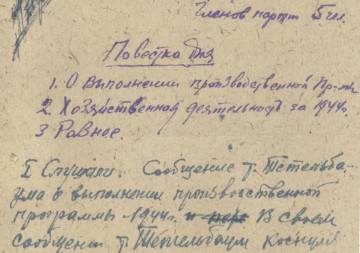 Членов партии 5 чел.
Повестка дня
1. О выполнении производственной пр-мы
2. Хозяйственная деятельность за 1944г.
3 Разное.
I Слушали. Сообщение т. Тетельба-
ума о выполнении производственной
программы 1944г. В своем
сообщении т. Тетельбаум коснулся